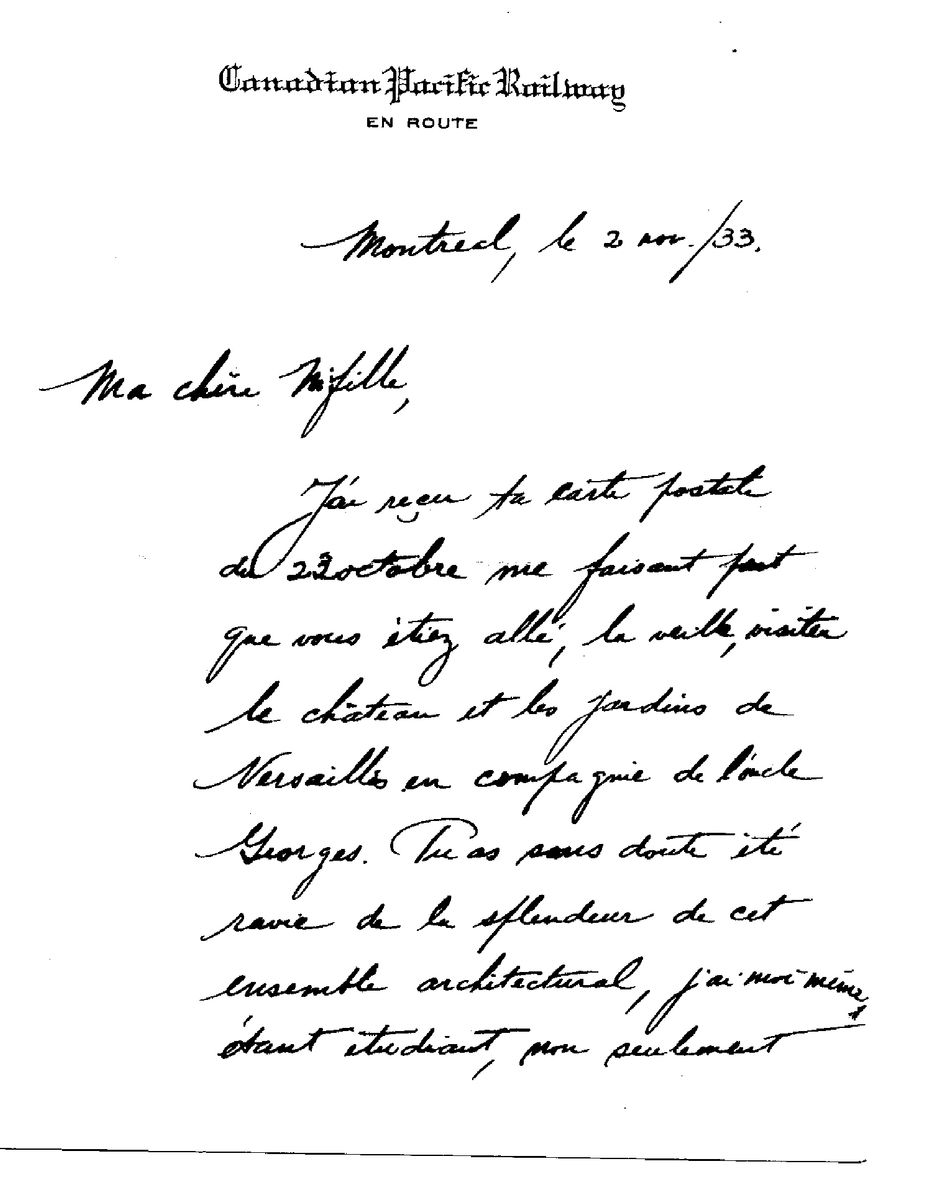 Canadian Pacific Railway
EN ROUTE
Montreal, le 2 nov. /33.
Ma chère Mifille,
J'ai reçu ta carte postale
du 23 octobre me faisant part
que vous étiez allé, la veille, visiter
le château et les jardins de
Versailles en compagnie de l'oncle
Georges. Tu as sans doute été
ravie de la splendeur de cet
ensemble architectural, j'ai moi même,
étant étudiant, non seulement